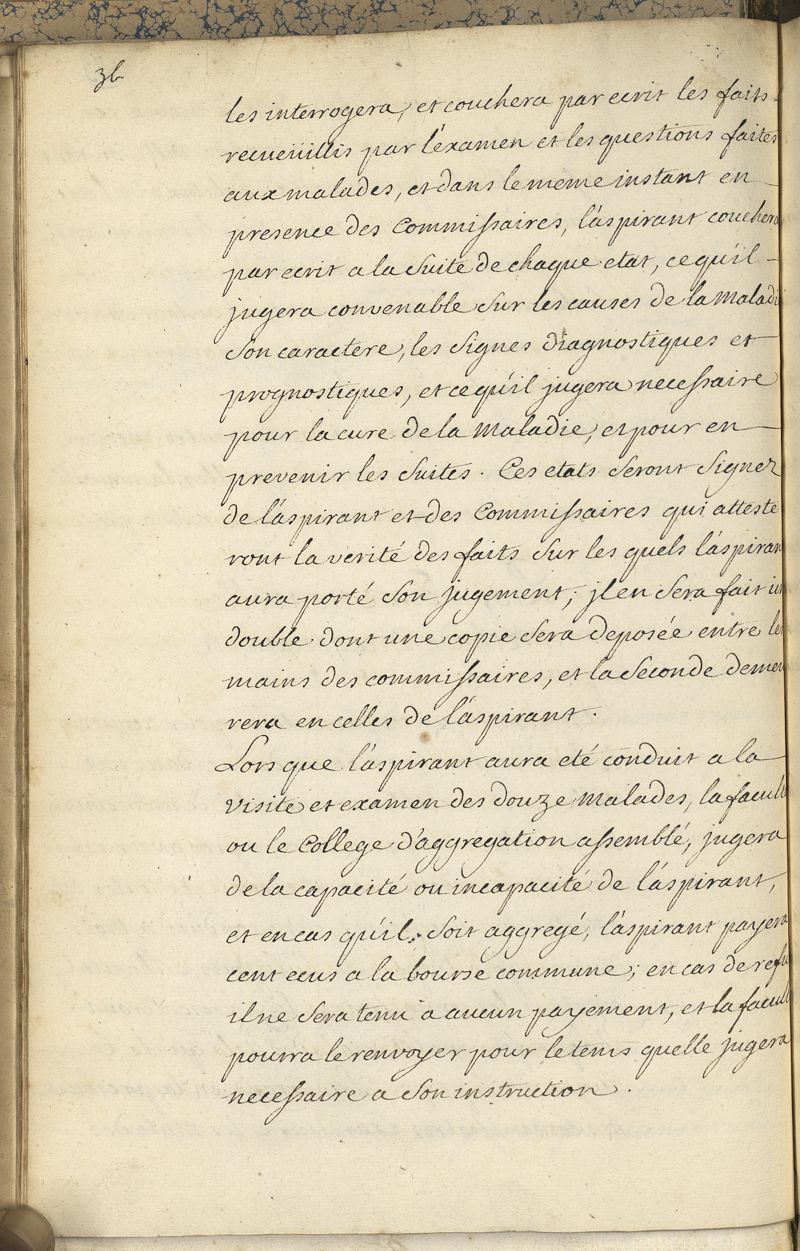 36
les interrogera, et couchera par ecrit les faits
recueüillis par l'éxamen et les questions faites
aux malades, et dans le meme instant en
presence des Commissaires, l'aspirant couchera
par ecrit a la suite de chaque etat, ce qu'il
jugera convenable sur les causes de la Maladi
son caractere, les signes diagnostiques et
prognostiques, et ce qu'il jugera necessaire
pour la cure de la Maladie, et pour en
prevenir les suites. Ces etats seront signez
de l'aspirant et des Commissaires qui atteste
ront la verité des faits sur les quels l'aspiran
aura porté son jugement, jl en sera fait un
double dont une copie sera deposée entre les
mains des commissaires, et la seconde demeu
rera en celles de l'aspirant.
Lors que l'aspirant aura eté conduit a la
visite et examen des douze Malades, la facult
ou le College d'aggregation assemblé, jugera
de la capacité ou incapacité de l'aspirant,
et en cas qu'il soit aggregé, l'aspirant payera
cent ecus a la bourse commune; en cas de refu
il ne sera tenu a aucun payement, et la facult
pourra le renvoyer pour le tems quelle jugera
necessaire a son instruction.